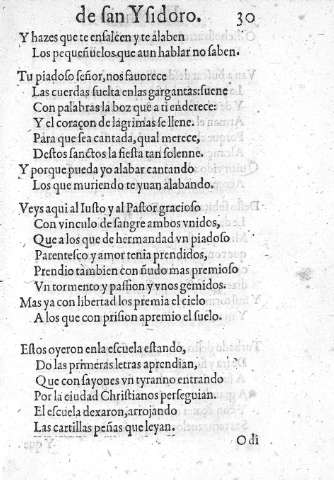 de san Ysidoro. 30
Y hazes que te ensalcen y te alaben
Los pequeñuelos que aun hablar no saben.
Tu piadoso señor, nos fauorece
Las cuerdas suelta enlas gargantas: suene
Con palabras la boz que a ti enderece:
Y el coraçon de lagrimas se llene.
Para que sea cantada, qual merece,
Destos sanctos la fiesta tan solenne.
Y porque pueda yo alabar cantando
Los que muriendo te yuan alabando.
Veys aqui al Iusto y al Pastor gracioso
Con vinculo de sangre ambos vnidos,
Que a los que de hermandad vn piadoso
Parentesco y amor tenia prendidos,
Prendio tambien con ñudo mas premioso
Vn tormento y passion y vnos gemidos.
Mas ya con libertad los premia el cielo
A los que con prision apremio el suelo.
Estos oyeron enla escuela estando,
Do las primeras letras aprendian,
Que con sayones vn tyranno entrando
Por la ciudad Christianos perseguian.
El escuela dexaron, arrojando
Las cartillas peñas que leyan.
O di